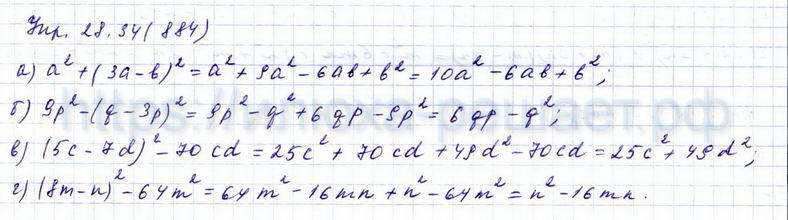 Упр. 28.34(884)
а) a² + (3a - b)² = a² + 9a² - 6ab + b² = 10a² - 6ab + b²;
б) 9p² - (q - 3p)² = 9p² - q² + 6qp - 9p² = 6qp - q²;
в) (5c - 7d)² - 70cd = 25c² + 70cd + 49d² - 70cd = 25c² + 49d²;
г) (8m - n)² - 64m² = 64m² - 16mn + n² - 64m² = n² - 16mn.